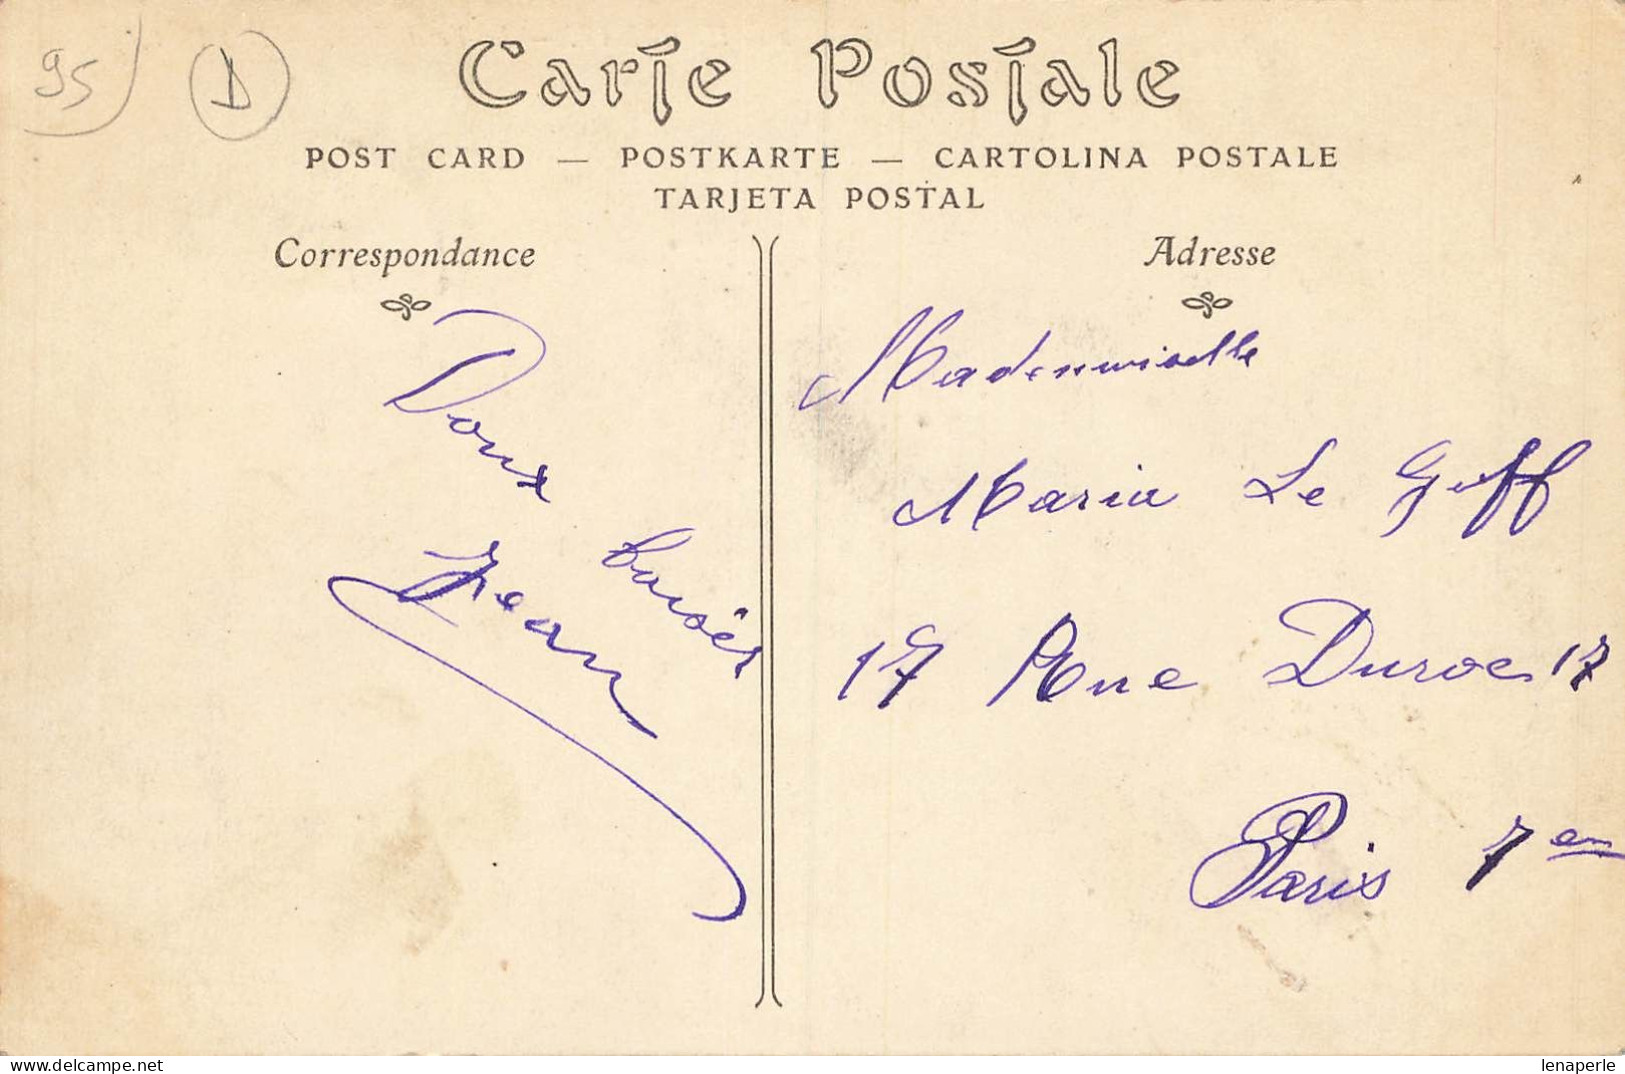 95
D
Carte Postale
POST CARD — POSTKARTE — CARTOLINA POSTALE
TARJETA POSTAL
Correspondance
Doux baisers
Jean
Adresse
Mademoiselle
Maria Le Goff
17 Rue Duroc 17
Paris 7em
www.delcampe.net
lenaperle